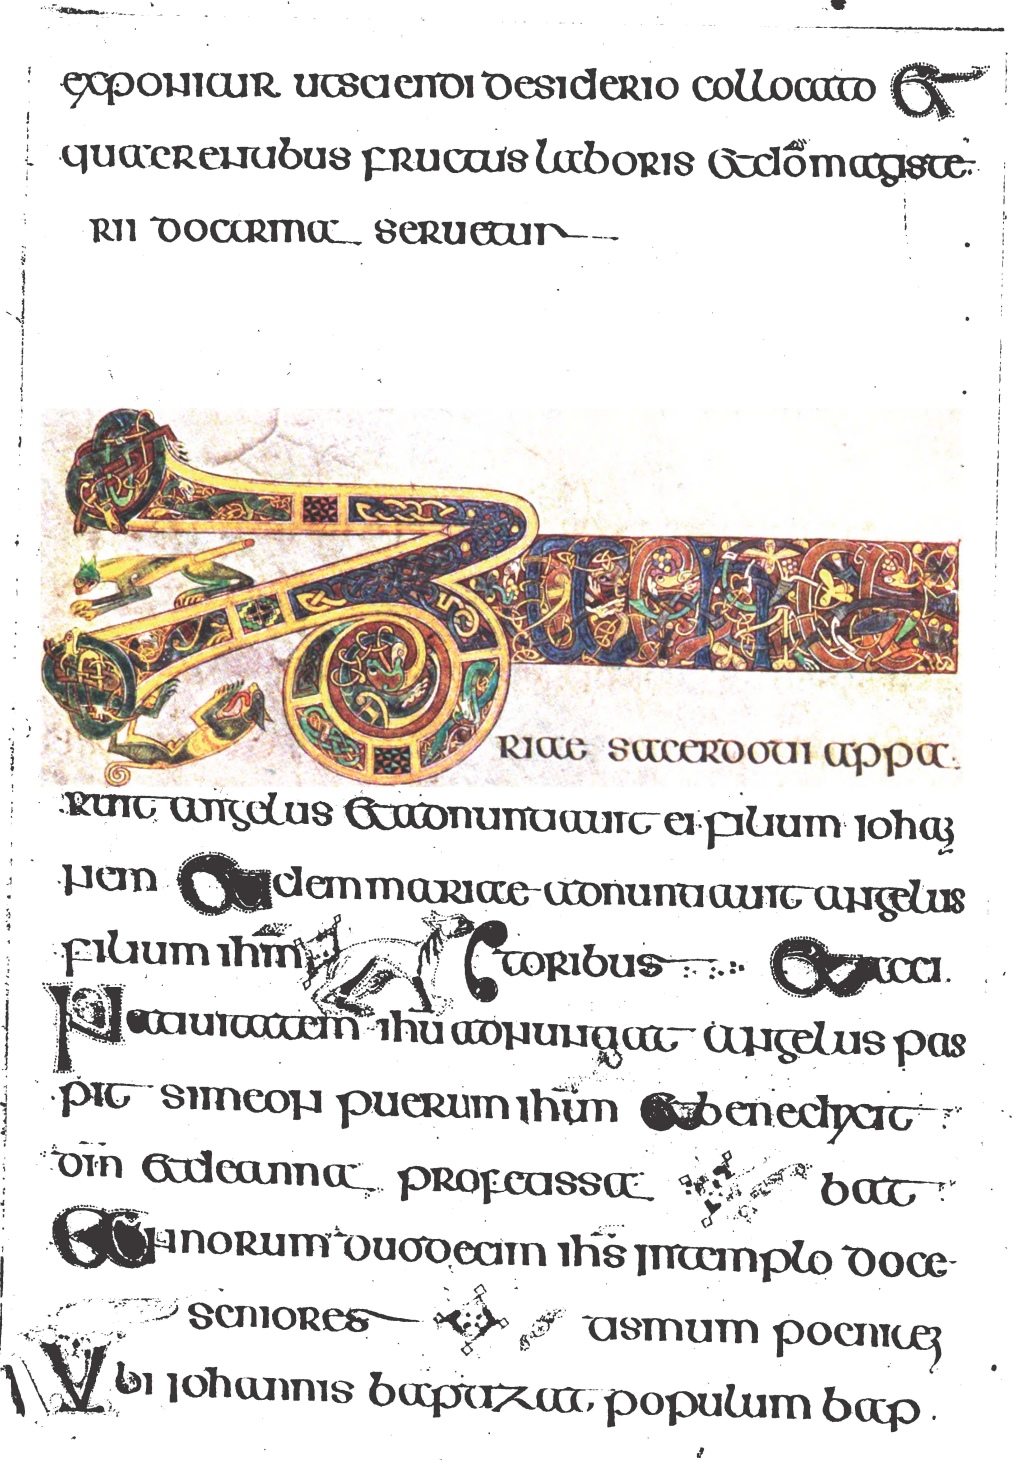 exponitur ut scienti desiderio collocato et
quaerentibus fructus laboris et do magiste
rii doctrina seruetur
Zacha
riae sacerdoti appa
ruit angelus et adnuntiauit ei filium ioha
nem eadem mariae adnuntiauit angelus
filium ihm toribus
natiuitatem ihu adnuntiat angelus pas
pit simeon puerum ihm et benedixit
dm et de anna profetissa bat
annorum duodecim ihs in templo doce
seniores tismum poenitē
ubi iohannis baptizat populum bap